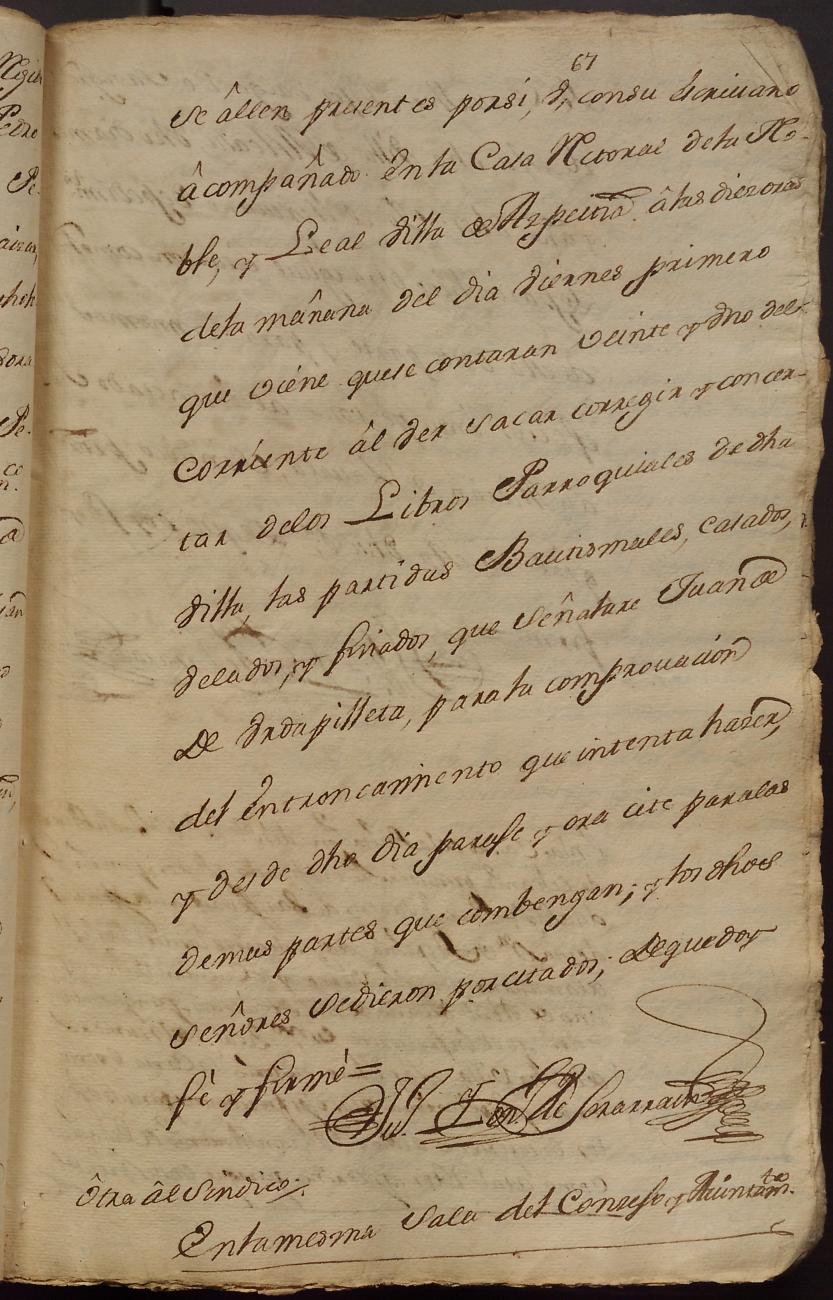 67
se âllen precentes porsi, ô, consu escriuano
âcompañado en la Casa Rectoral de la No-
ble, y Leal villa de Azpeitia â las diez oras
dela mañana del dia viernes primero
que viene que se contaran veinte y vno del
corriente âl ver sacar corregir y concer-
tar delos Libros Parroquiales de dha
villa, las partidas Bautismales, casados,
velados, y finados, que señalare Juan de
de Vrdapilleta, para la comprouacion
del êntroncamiento que intenta hazer,
y desde dho dia parase y ora cite para las
demas partes que combengan; y los dhos
señores sedieron por citados; de que doy
fè y firmé =
de Lorarrain
Otra âl Sindico.
En la mesma Sala del Conzejo y Aiuntam.to